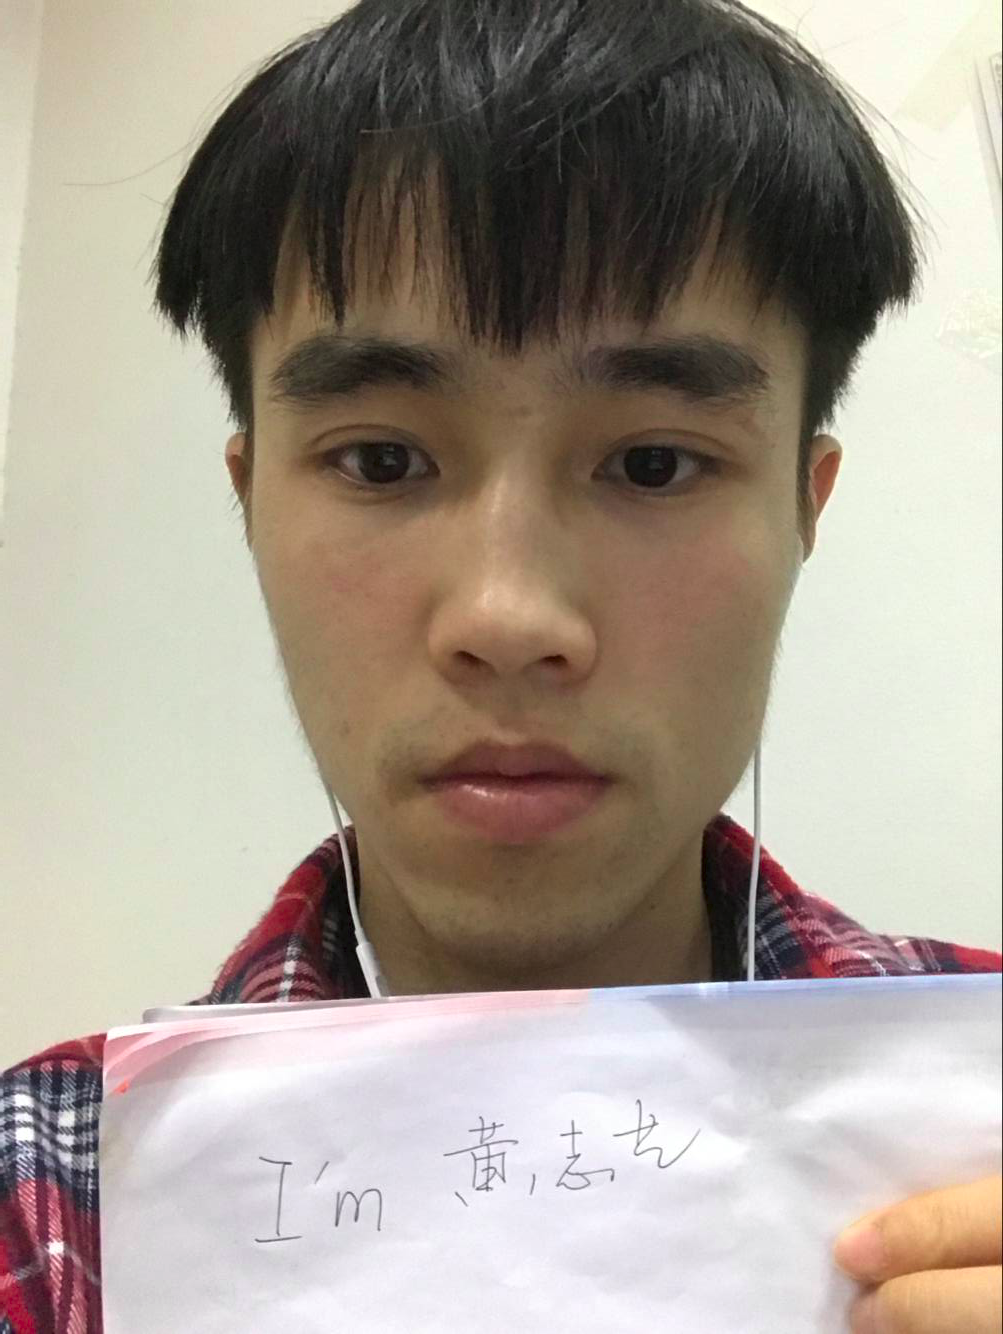 I'm 黄志艺